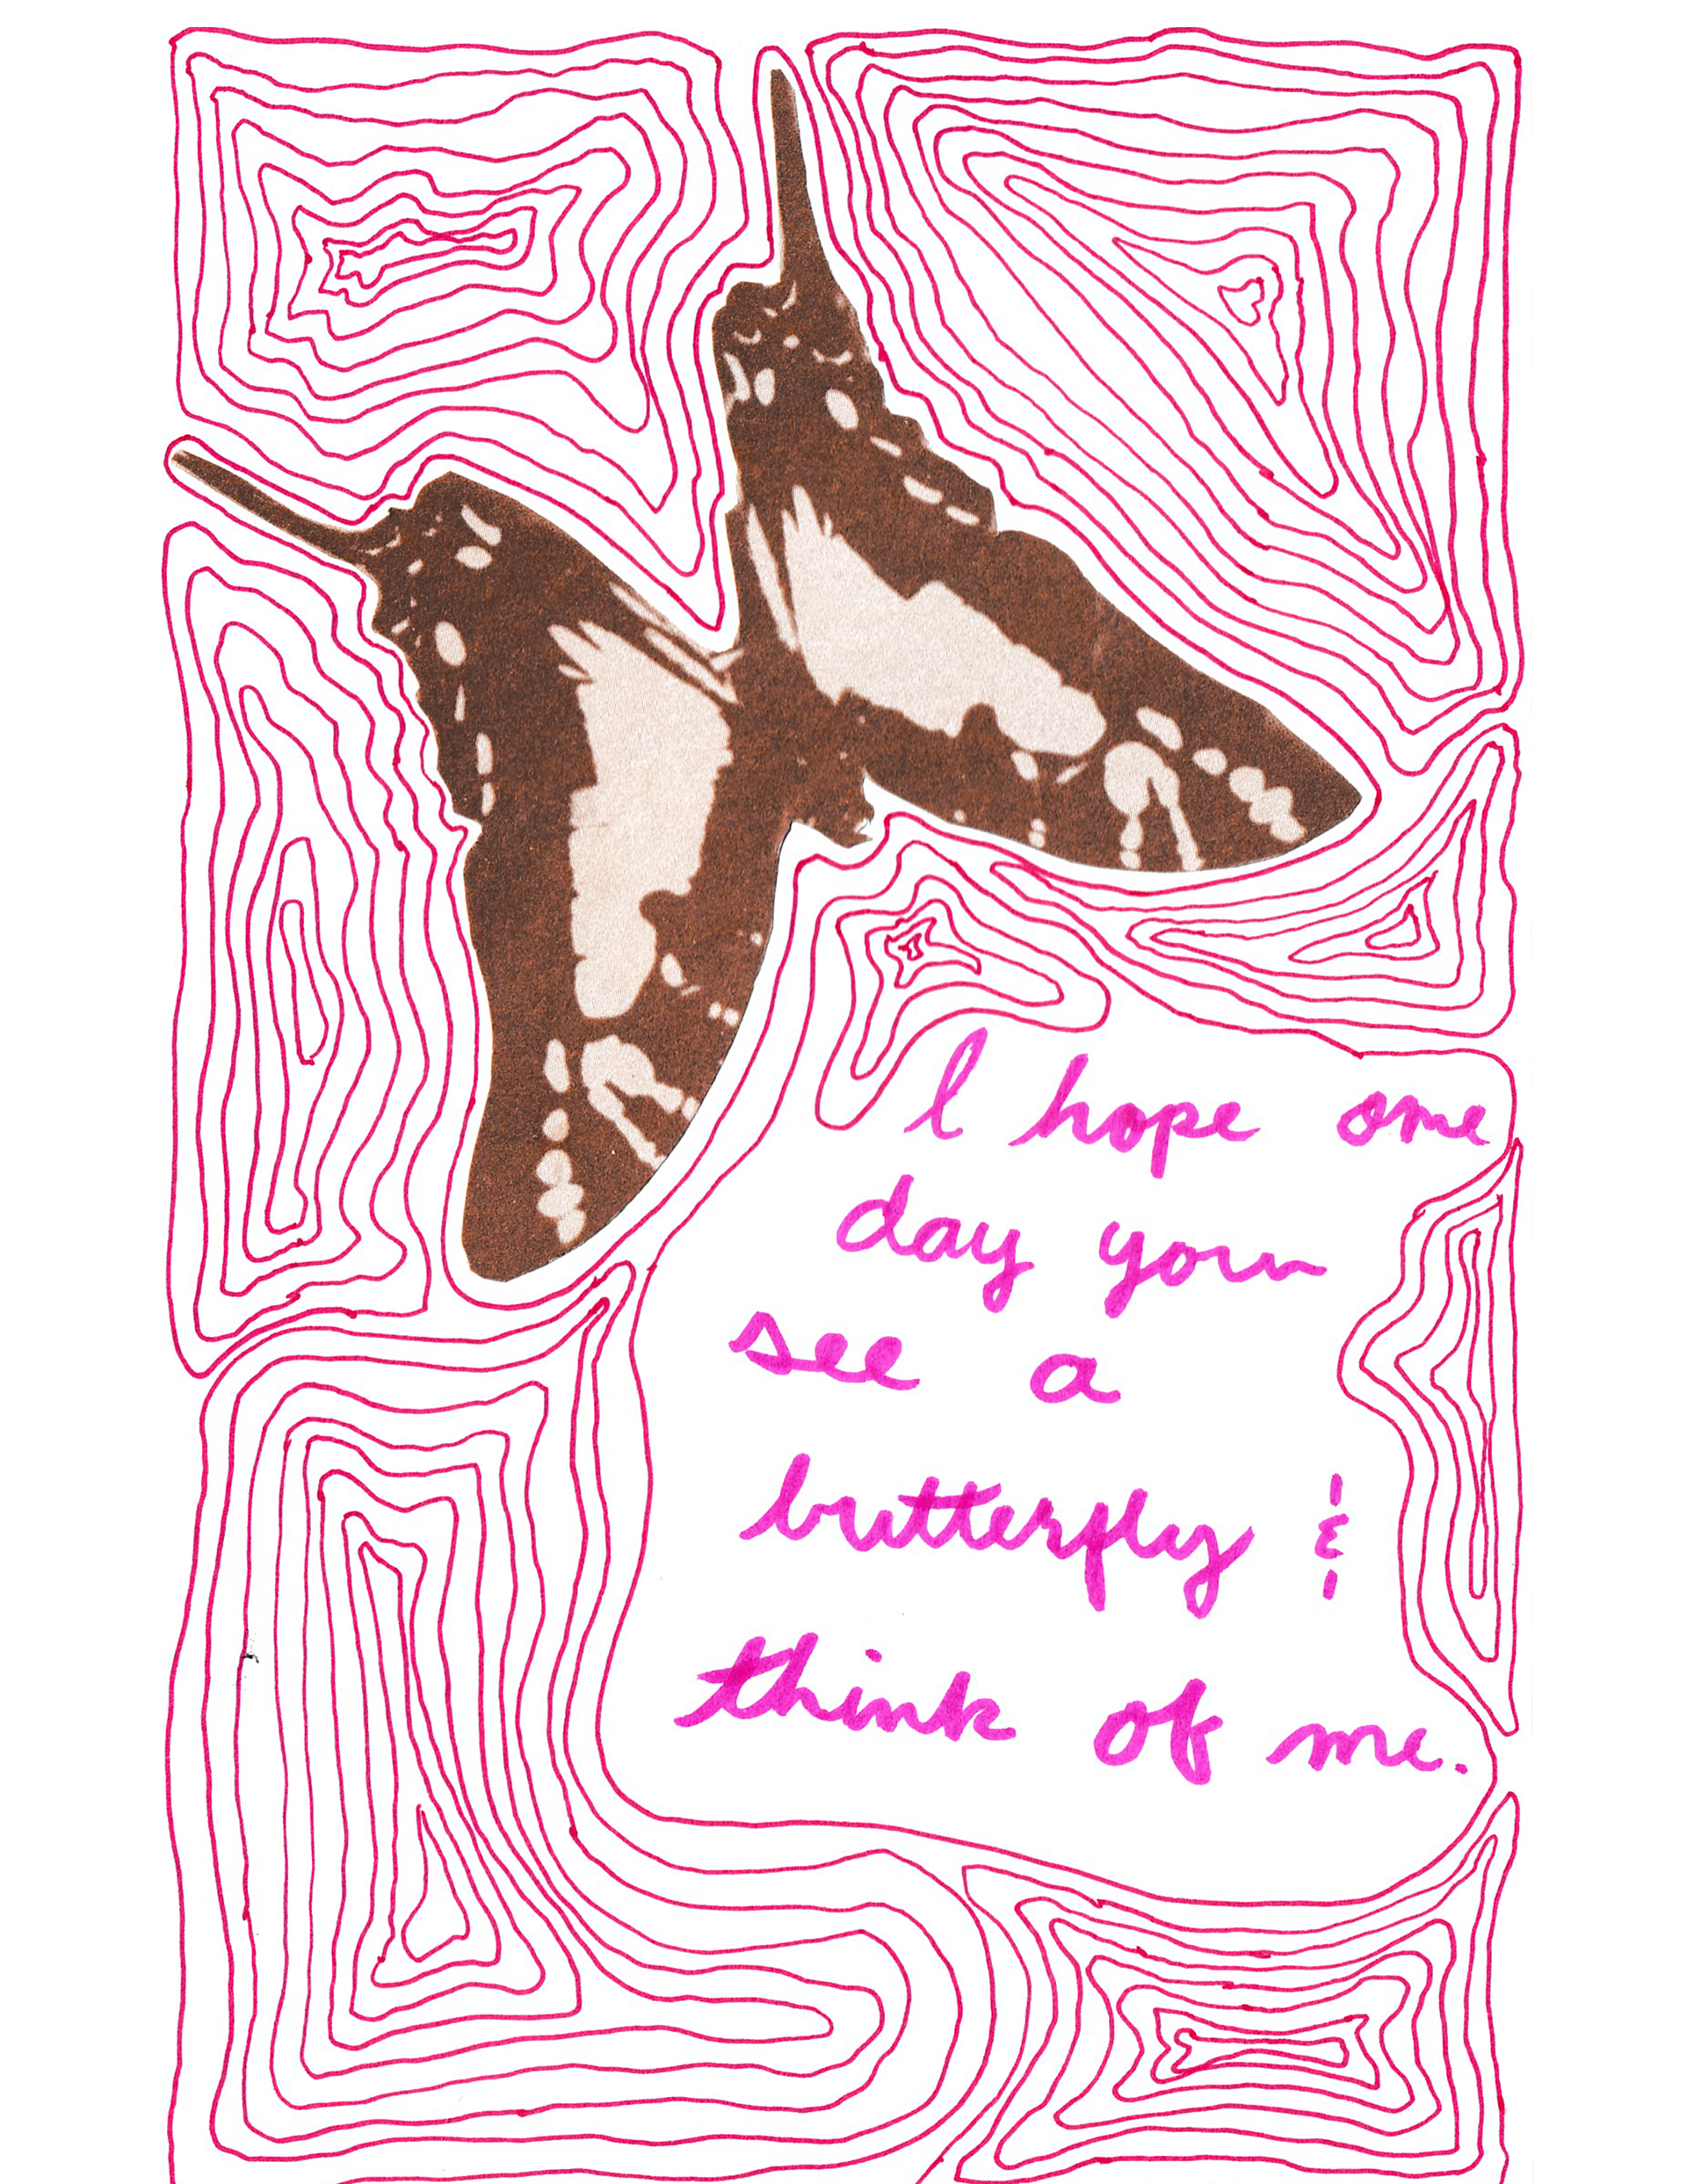 I hope one
day you
see a
butterfly &
think of me.